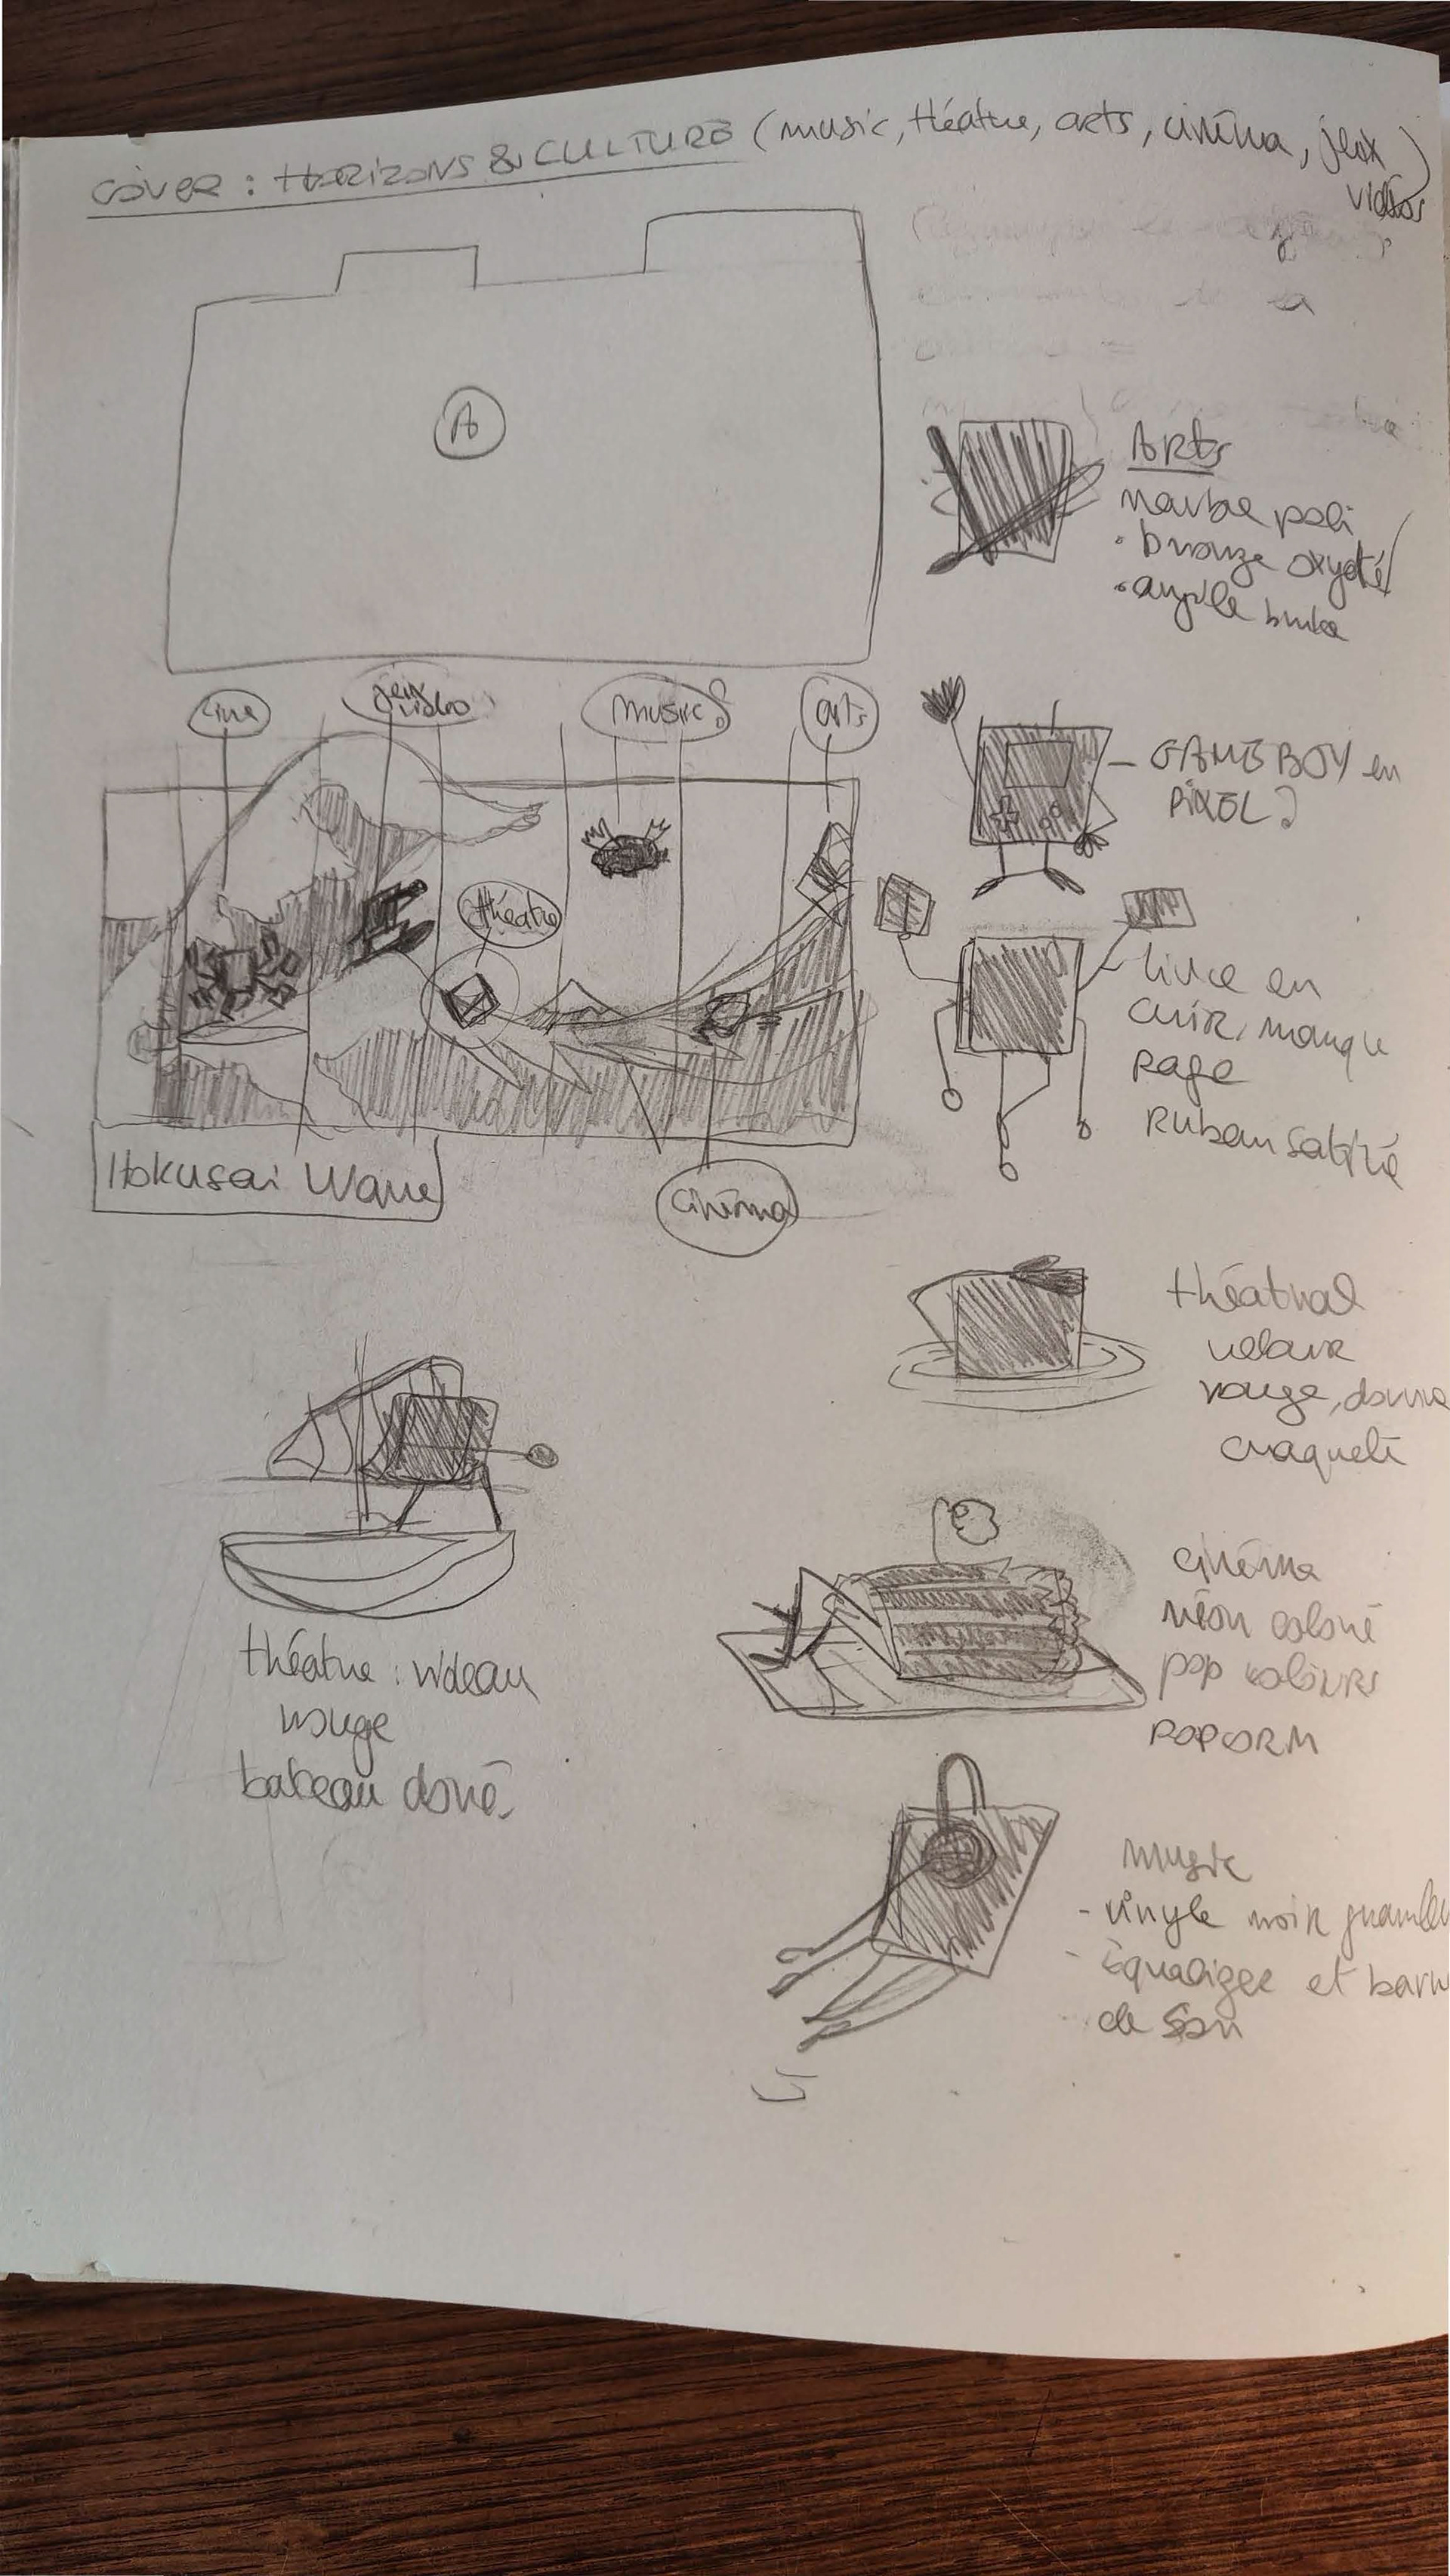 COVER : HORIZONS & CULTURE (music, théatre, arts, cinéma, jeux
vidéos)
A
ARTS
marbre poli
• bronze oxydé
• argile brute
jeux
vidéo
music
arts
GAME BOY en
PIXEL ?
théatre
livre en
cuir, marque
page
Ruban satiné
Hokusai Wave
cinéma
théatral
velours
rouge, dorure
craquelé
cinéma
néon coloré
pop colours
POPCORN
théatre : rideau
rouge
bateau doré
music
- vinyle noir
- équalizer et
de son